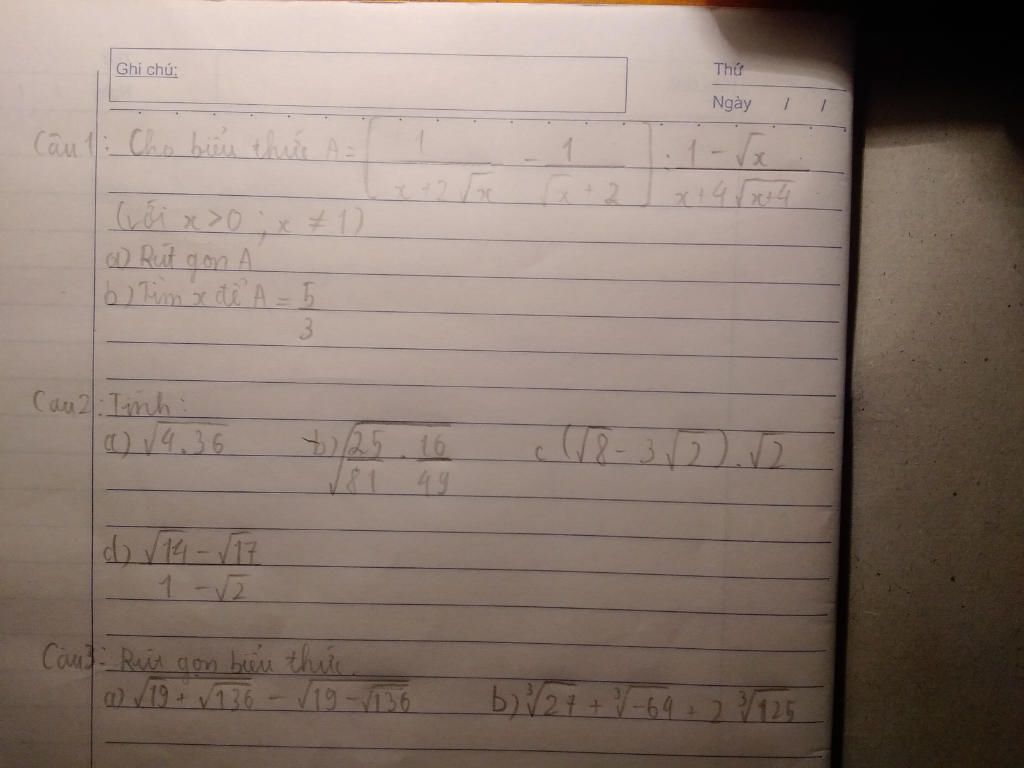 Ghi chú:
Thứ
Ngày / /
Câu 1: Cho biểu thức A = [1/(x+2√x) - 1/(√x+2)] : (1-√x)/(x+4√(x+4))
(với x>0 ; x ≠ 1)
a) Rút gọn A
b) Tìm x để A = 5/3
Câu 2: Tính:
a) √(4.36) b) √(25/81 . 16/49) c (√8 - 3√2).√2
d) (√14 - √17)/(1 - √2)
Câu 3: Rút gọn biểu thức
a) √(19 + √136) - √(19 - √136) b) ³√27 + ³√-64 + 2 ³√125